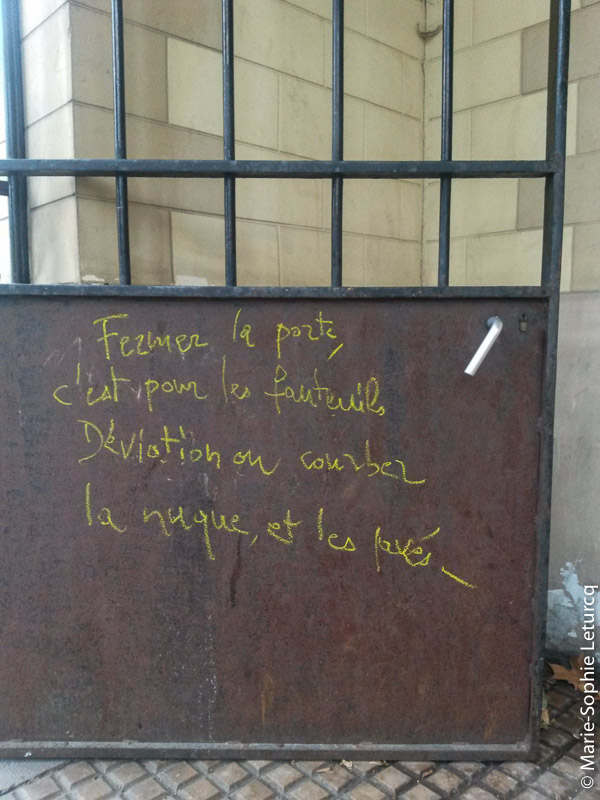 Fermer la porte,
c'est pour les fauteuils
Déviation ou courber
la nuque, et les pavés._
© Marie-Sophie Leturcq